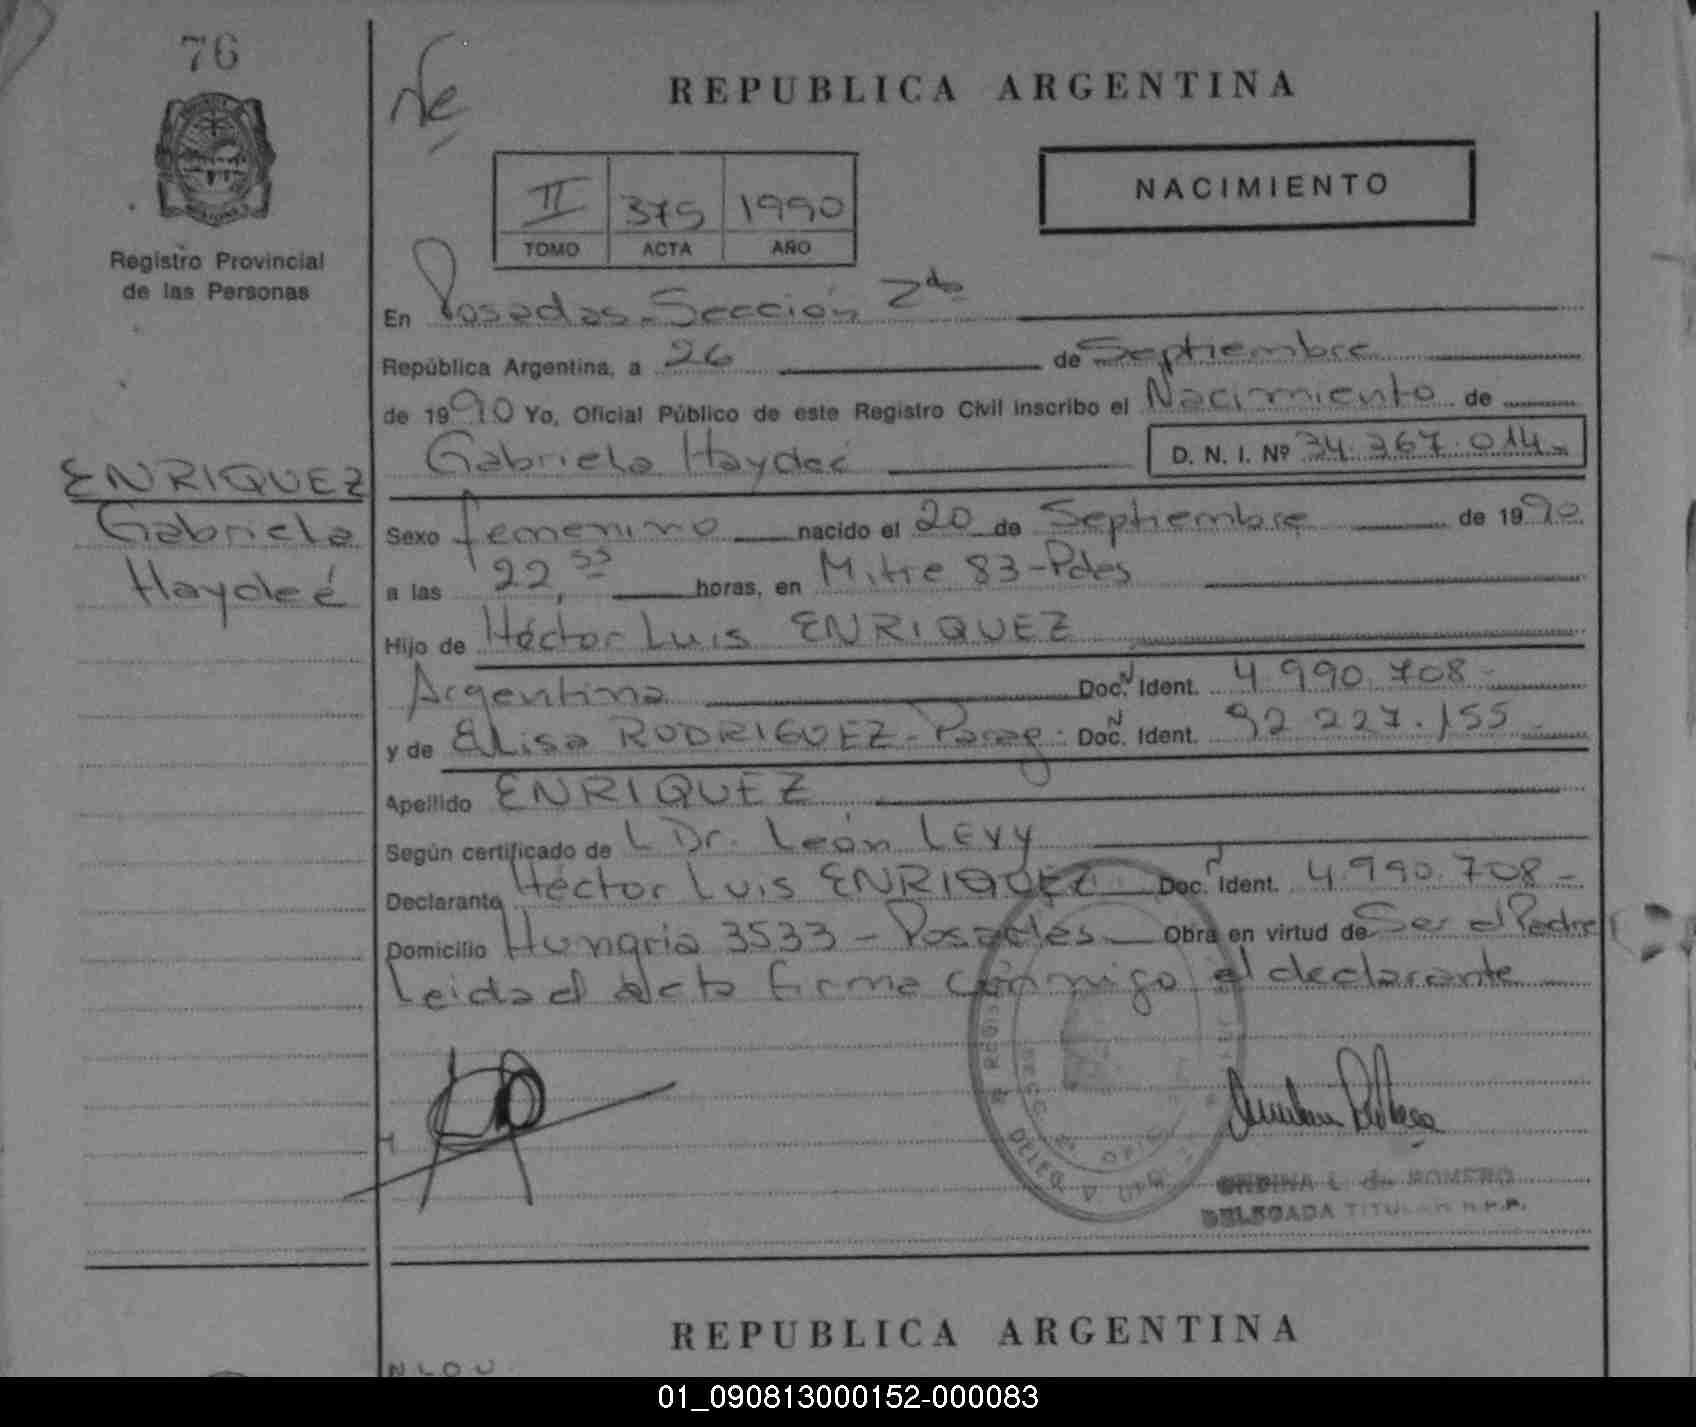 76
REPUBLICA ARGENTINA
NACIMIENTO
II 375 1990
TOMO ACTA AÑO
Registro Provincial
de las Personas
En Posadas-Sección 2da
República Argentina, a 26 de Septiembre
de 1990 Yo, Oficial Público de este Registro Civil inscribo el Nacimiento de
Gabriela Haydeé D. N. I. Nº 34.367.014
ENRIQUEZ
Gabriela
Haydeé
Sexo femenino nacido el 20 de Septiembre de 1990
a las 22,55 horas, en Mitre 83-Pdas
Hijo de Héctor Luis ENRIQUEZ
Argentina Doc. N Ident. 4.990.708-
y de Elisa RODRIGUEZ-Parag. Doc. N Ident. 92 227.155
Apellido ENRIQUEZ
Según certificado de L Dr. León LEVY
Declarante Héctor Luis ENRIQUEZ Doc. N Ident. 4.990.708-
Domicilio Hungria 3533 - Posadas Obra en virtud de Ser el Padre
Leida el acta firma conmigo el declarante
L. de ROMERO
DELEGADA TITULAR R.P.P.
REPUBLICA ARGENTINA
01_090813000152-000083